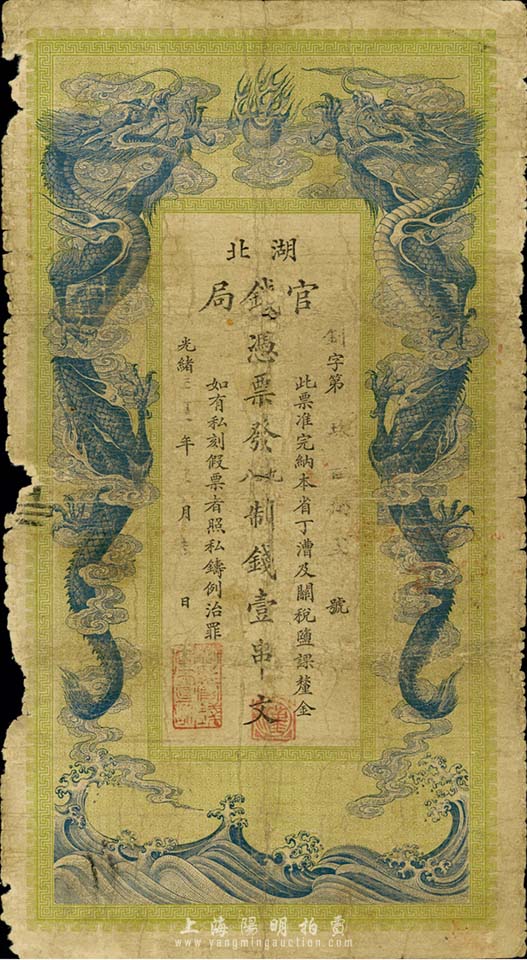 湖北
官錢局
憑票發九八制錢壹串文
字第 號
此票准完納本省丁漕及關稅鹽課釐金
如有私刻假票者照私鑄例治罪
光緒三 年 月 日
上海陽明拍賣
www.yangmingauction.com